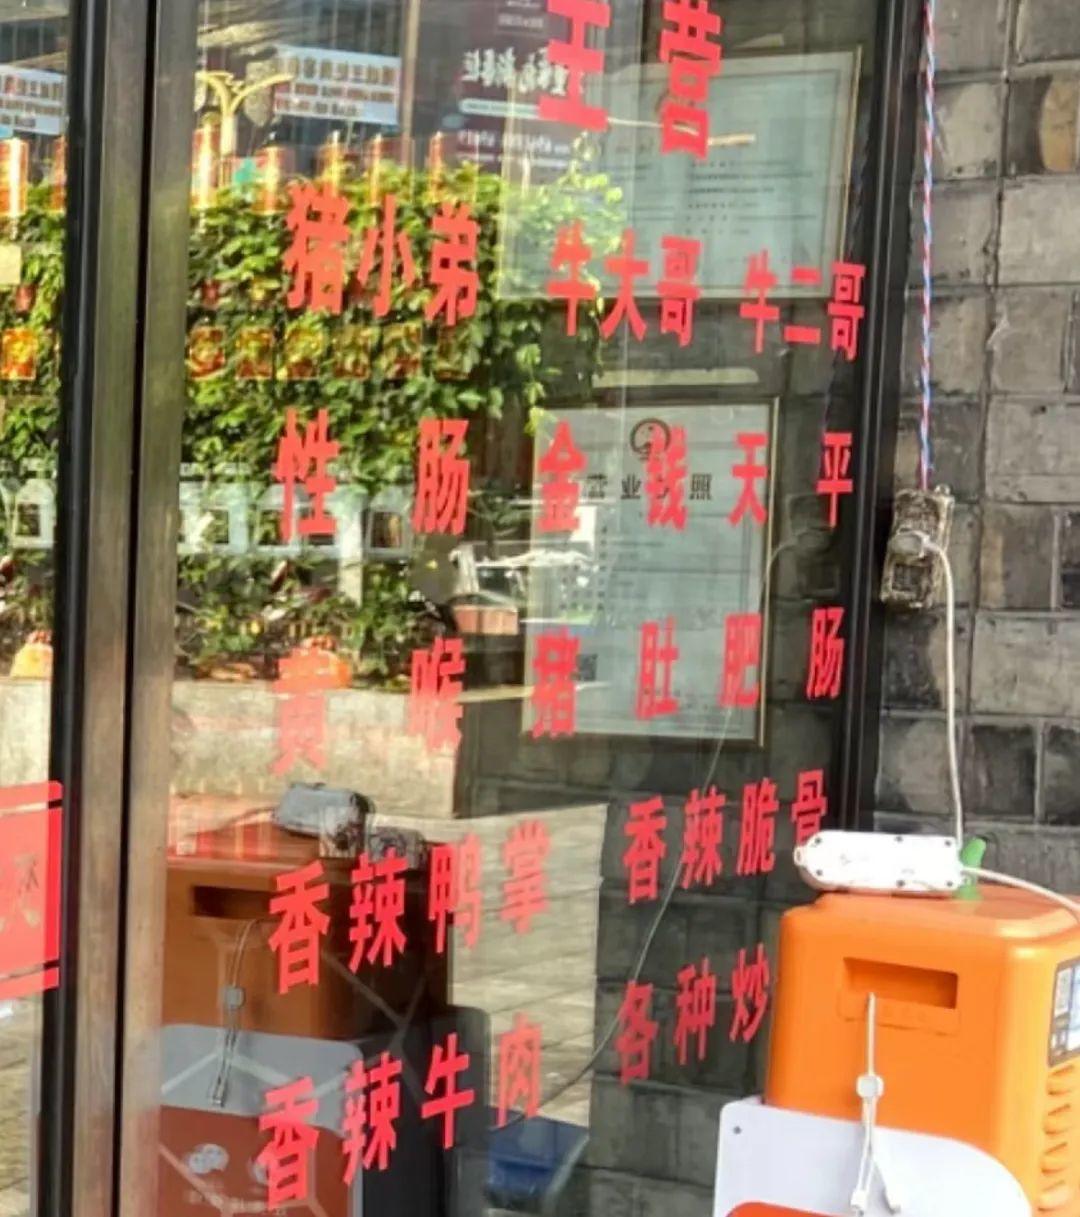 主营
猪小弟 牛大哥 牛二哥
性肠 金钱天平
黄喉 猪肚 肥肠
香辣鸭掌 香辣脆骨
香辣牛肉 各种炒